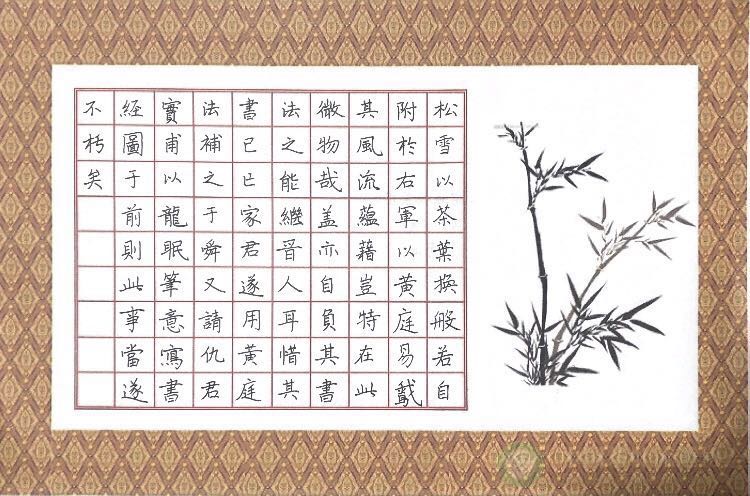 松雪以茶葉换般若自
附於右軍以黄庭易鵞
其風流蘊藉豈特在此
微物哉盖亦自負其書
法之能繼晉人耳惜其
書已亡家君遂用黄庭
法補之于舜又請仇君
實甫以龍眠筆意寫書
經圖于前則此事當遂
不朽矣